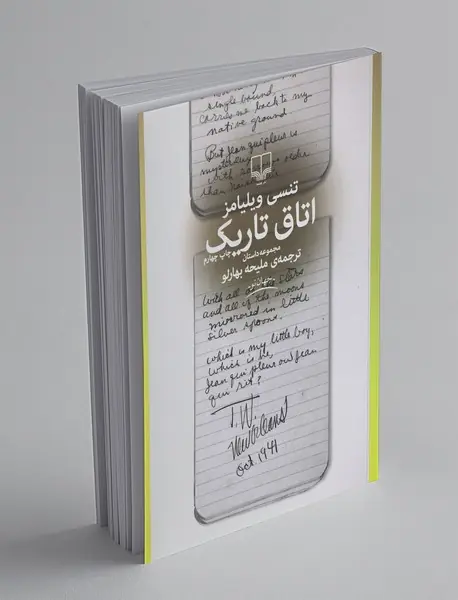 single bound
carries me back to my
native ground.
But Jean qui pleure is
تنسی ویلیامز
اتاق تاریک
مجموعه داستان چاپ چهارم
ترجمه‌ی ملیحه بهارلو
جهان نو
With all of the silver
and all of the moons
mirrored in little
silver spoons.
which is my little boy,
which is he,
Jean qui pleure ou Jean
qui rit?
T. W.
New Orleans
Oct 1941